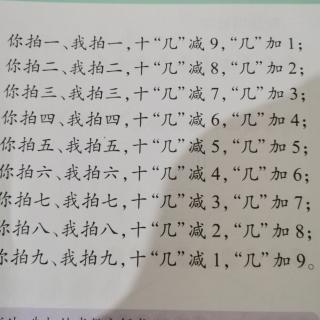 你拍一、我拍一,十“几”减9,“几”加1;
你拍二、我拍二,十“几”减8,“几”加2;
你拍三、我拍三,十“几”减7,“几”加3;
你拍四、我拍四,十“几”减6,“几”加4;
你拍五、我拍五,十“几”减5,“几”加5;
你拍六、我拍六,十“几”减4,“几”加6;
你拍七、我拍七,十“几”减3,“几”加7;
你拍八、我拍八,十“几”减2,“几”加8;
你拍九、我拍九,十“几”减1,“几”加9。